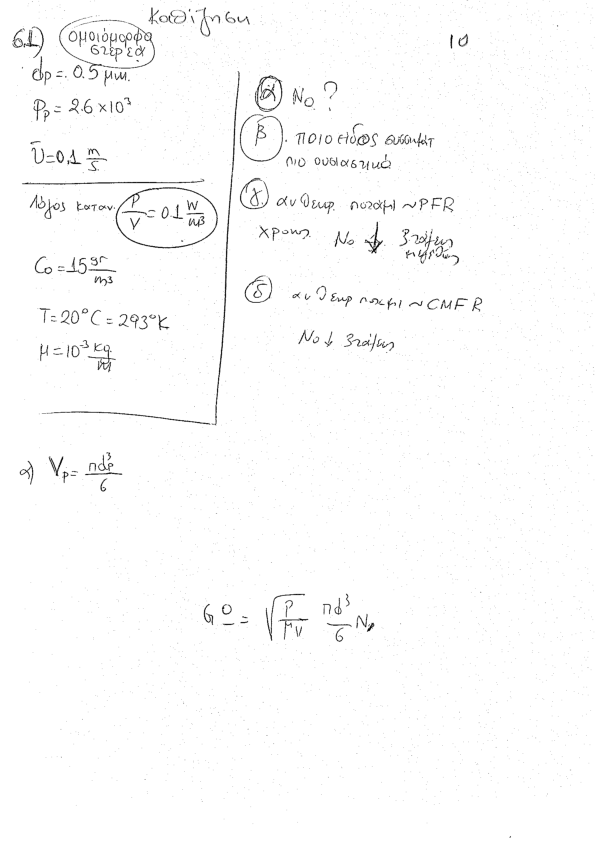 Καθίζηση
10
6.1) ομοιόμορφα
στερεά
dp = 0.5 μm.
ρp = 2.6 × 10³
Ū = 0,1 m/s
Λόγος καταν. P/V = 0.1 W/m³
C₀ = 15 gr/m³
T = 20°C = 293°K
μ = 10⁻³ kg/m
α) No ?
β. ποιο είδος συσσωμάτ
πιο ουσιαστικά
γ. αν θεωρ. ποτάμι ~ PFR
χρονος No ↓ 3 τάξεις
μεγέθους
δ αν θεωρ ποταμι ~ CMFR
No ↓ 3 τάξεις
α) Vp = πdp³/6
G Ω = √(P/μV) πd³/6 No